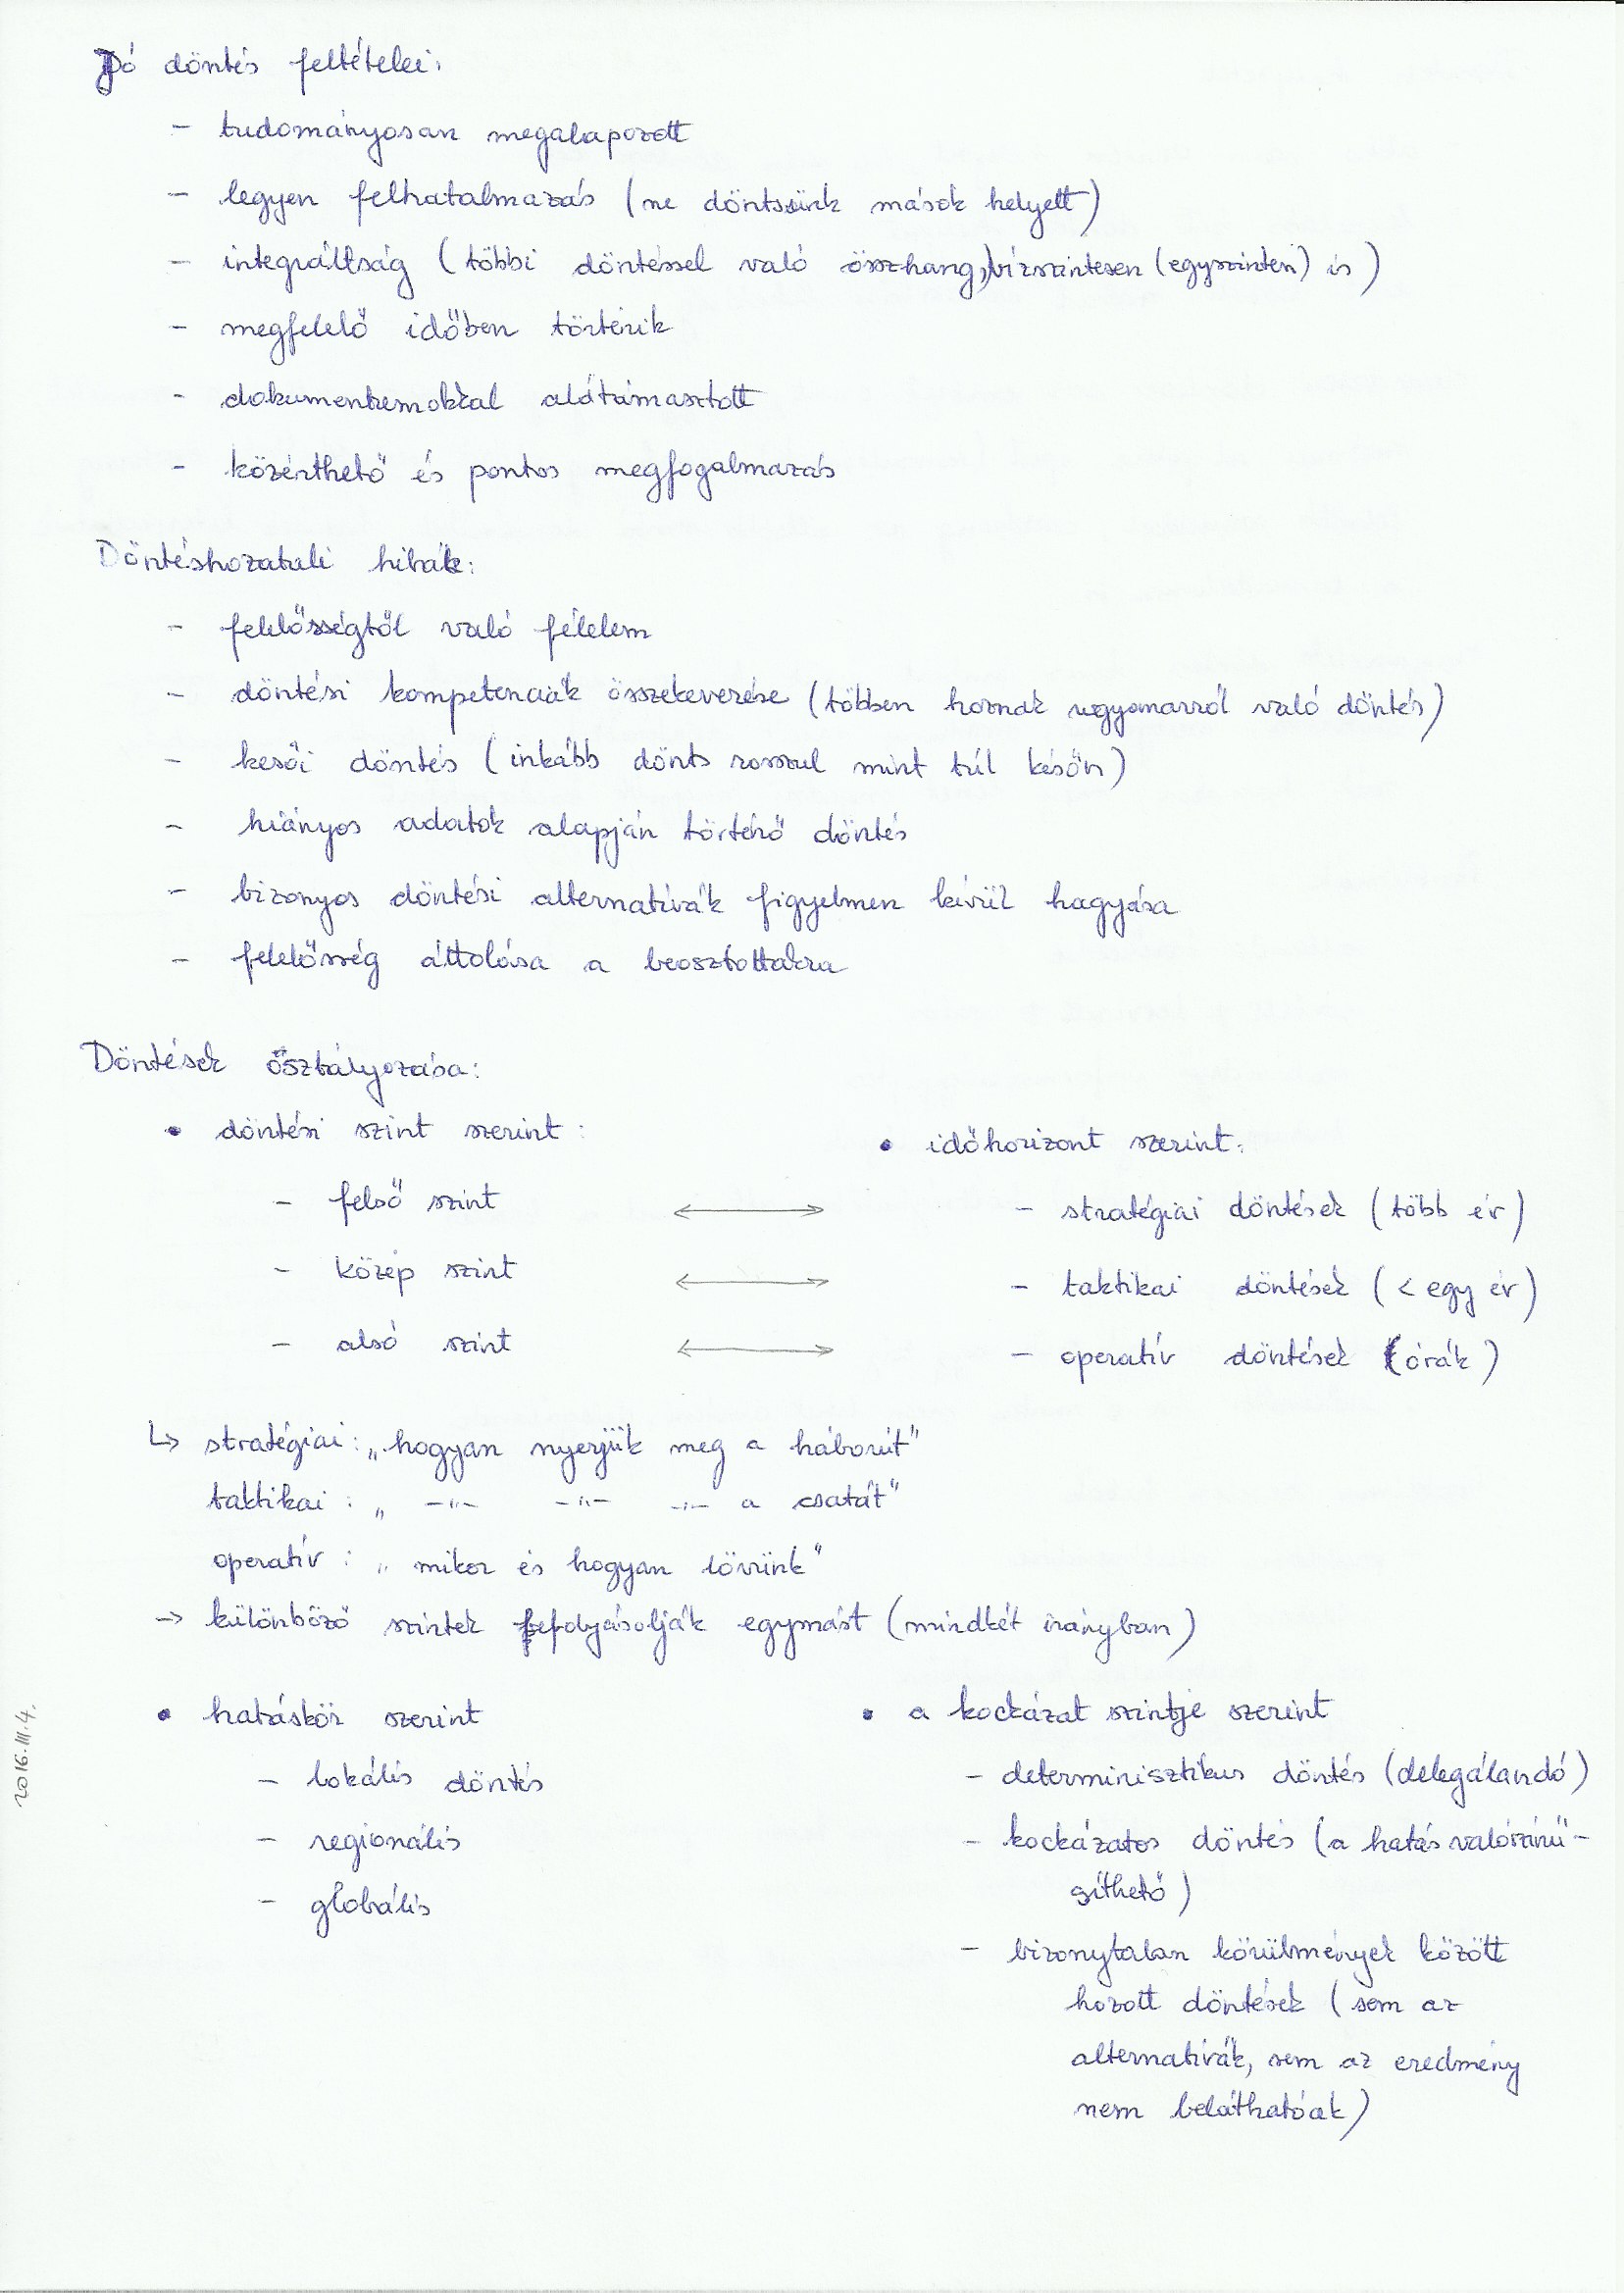 Jó döntés feltételei:
- tudományosan megalapozott
- legyen felhatalmazás (ne döntsünk mások helyett)
- integráltság (többi döntéssel való összhang, vízszintesen (egyszinten) is)
- megfelelő időben történik
- dokumentumokkal alátámasztott
- közérthető és pontos megfogalmazás
Döntéshozatali hibák:
- felelősségtől való félelem
- döntési kompetenciák összekeverése (többen hoznak ugyanarról való döntés)
- késői döntés (inkább dönts rosszul mint túl későn)
- hiányos adatok alapján történő döntés
- bizonyos döntési alternatívák figyelmen kívül hagyása
- felelősség áttolása a beosztottakra
Döntések osztályozása:
• döntési szint szerint:
• időhorizont szerint:
- felső szint ⟷ - stratégiai döntések (több év)
- közép szint ⟷ - taktikai döntések (< egy év)
- alsó szint ⟷ - operatív döntések (órák)
↳ stratégiai: „hogyan nyerjük meg a háborút"
taktikai: „ -"- -"- -"- a csatát"
operatív: „mikor és hogyan lövünk"
→ különböző szintek befolyásolják egymást (mindkét irányban)
• hatáskör szerint
- lokális döntés
- regionális
- globális
• a kockázat szintje szerint
- determinisztikus döntés (delegálandó)
- kockázatos döntés (a hatás valószínű-
síthető)
- bizonytalan körülmények között
hozott döntések (sem az
alternatívák, sem az eredmény
nem beláthatóak)
2016.III.4.